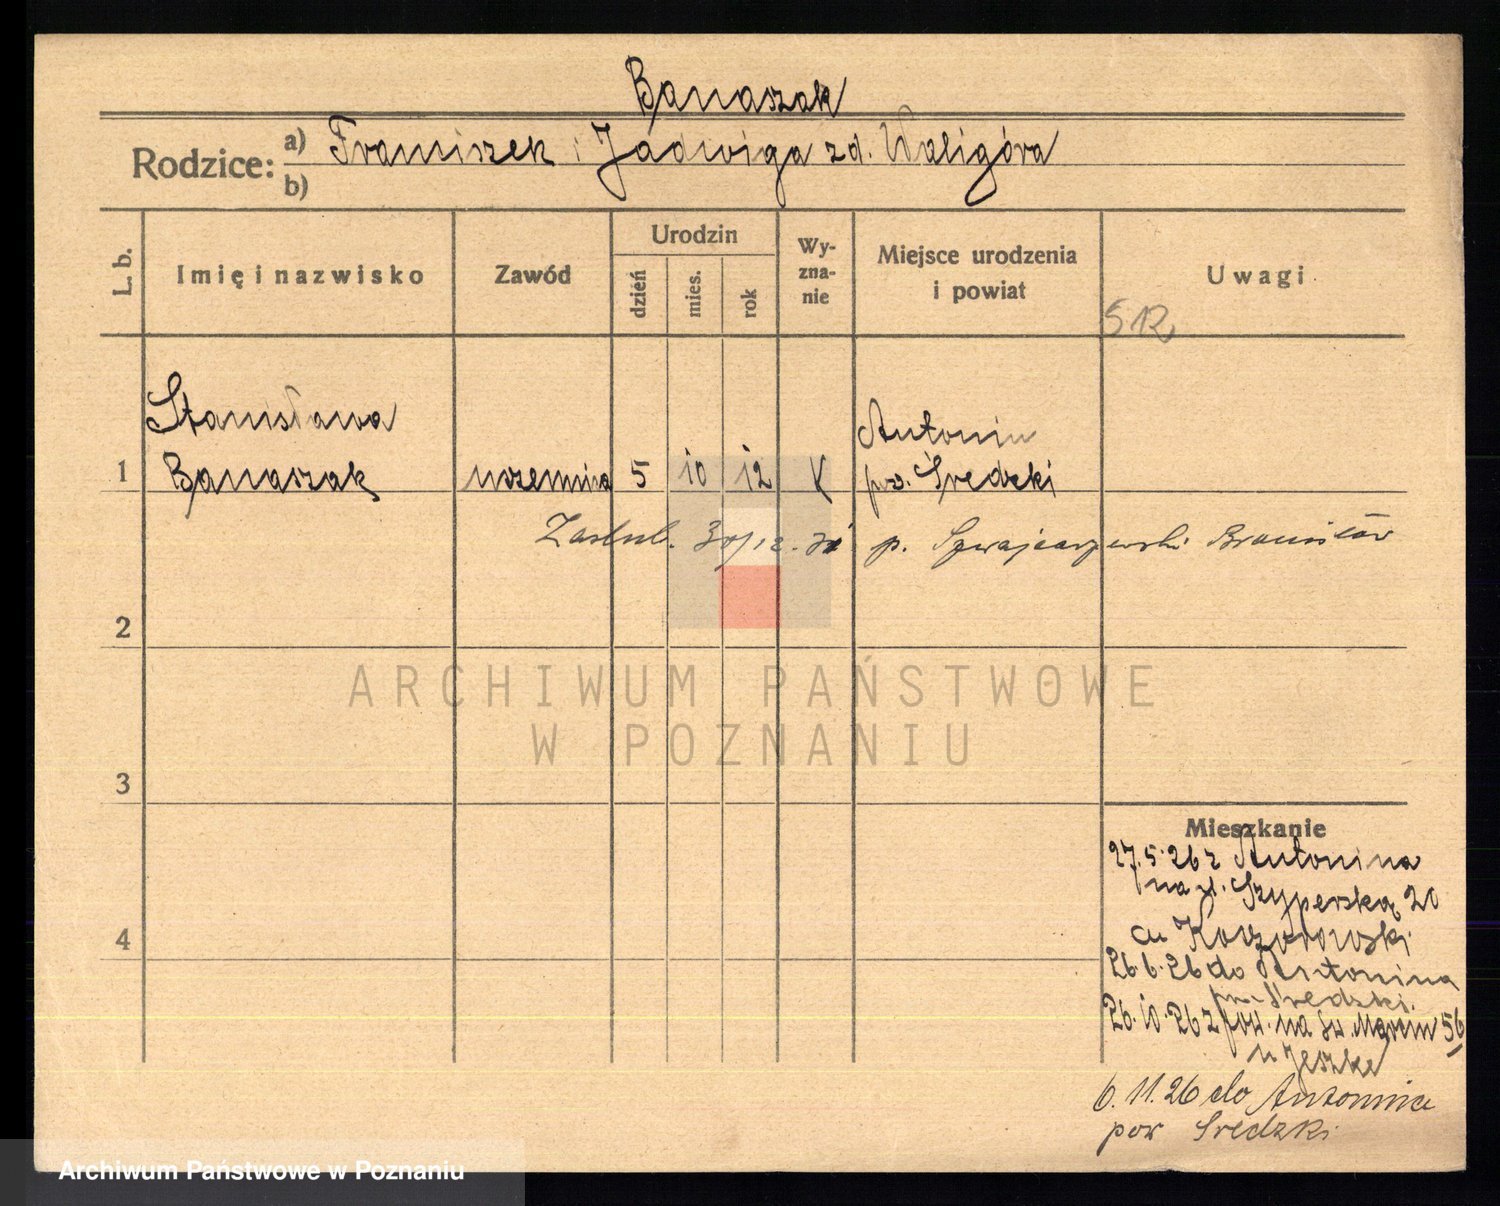 Banaszak
Rodzice: a) Franciszek i Jadwiga zd. Waligóra
b)
L. b. Imię i nazwisko Zawód Urodzin dzień mies. rok Wy-zna-nie Miejsce urodzenia i powiat Uwagi
512
Stanisława Antonin
1 Banaszak uczennica 5 10 12 K pow. Średzki
Zaślub. 30/12. 31 p. Szwajcarzewski Bronisław
2
ARCHIWUM PAŃSTWOWE
W POZNANIU
3
Mieszkanie
27.5.26 z Antonina
na ul. Szyperską 20
4
26.6.26 do Antonina
pow. Średzki.
26.10.26 z pow. na Św. Marcin 56
u Jeszke
6.11.26 do Antonina
pow Średzki
Archiwum Państwowe w Poznaniu